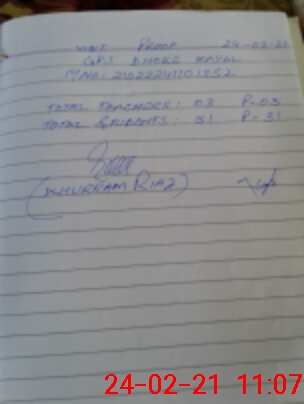 VISIT PROOF 24-02-21
GPS DHOKE
TOTAL TEACHERS: 03 P-03
TOTAL STUDENTS: 31 P-31
(KHURRAM RIAZ)
24-02-21 11:07